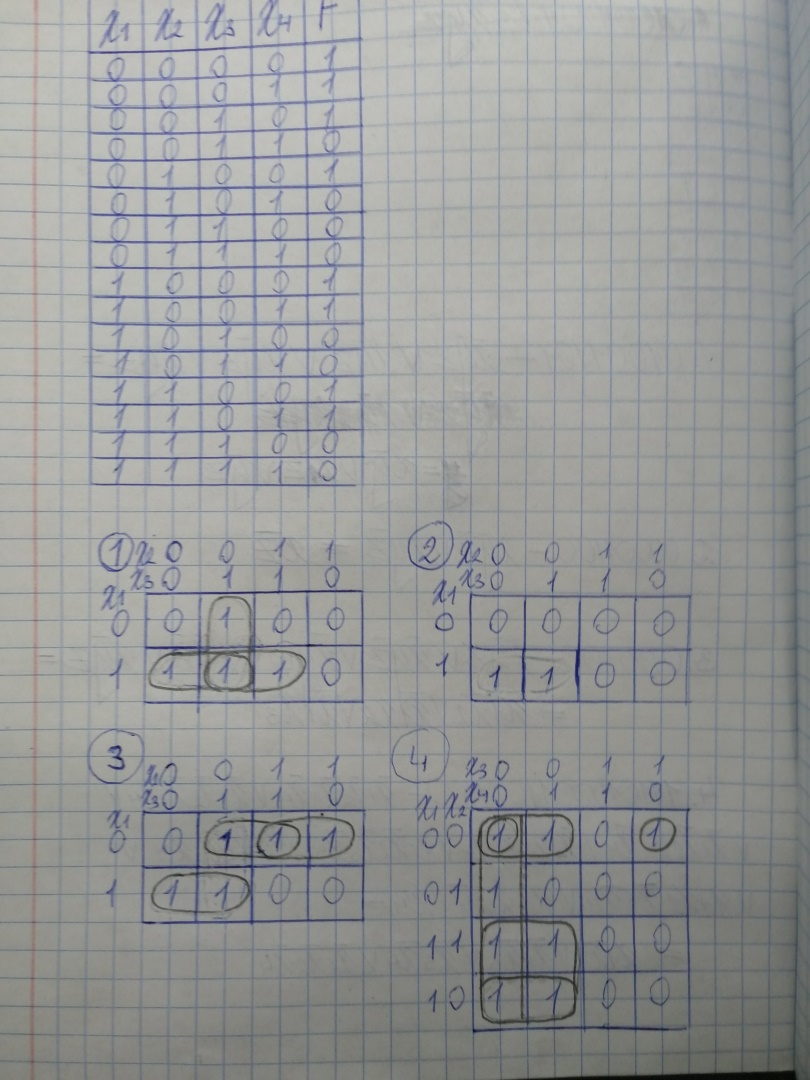 x1 x2 x3 x4 F
0 0 0 0 1
0 0 0 1 1
0 0 1 0 1
0 0 1 1 0
0 1 0 0 1
0 1 0 1 0
0 1 1 0 0
0 1 1 1 0
1 0 0 0 1
1 0 0 1 1
1 0 1 0 0
1 0 1 1 0
1 1 0 0 1
1 1 0 1 1
1 1 1 0 0
1 1 1 1 0
1 x2 0 0 1 1
x3 0 1 1 0
x1
0 0 1 0 0
1 1 1 1 0
2 x2 0 0 1 1
x3 0 1 1 0
x1
0 0 0 0 0
1 1 1 0 0
3 x2 0 0 1 1
x3 0 1 1 0
x1
0 0 1 1 1
1 1 1 0 0
4 x3 0 0 1 1
x4 0 1 1 0
x1 x2
0 0 1 1 0 1
0 1 1 0 0 0
1 1 1 1 0 0
1 0 1 1 0 0